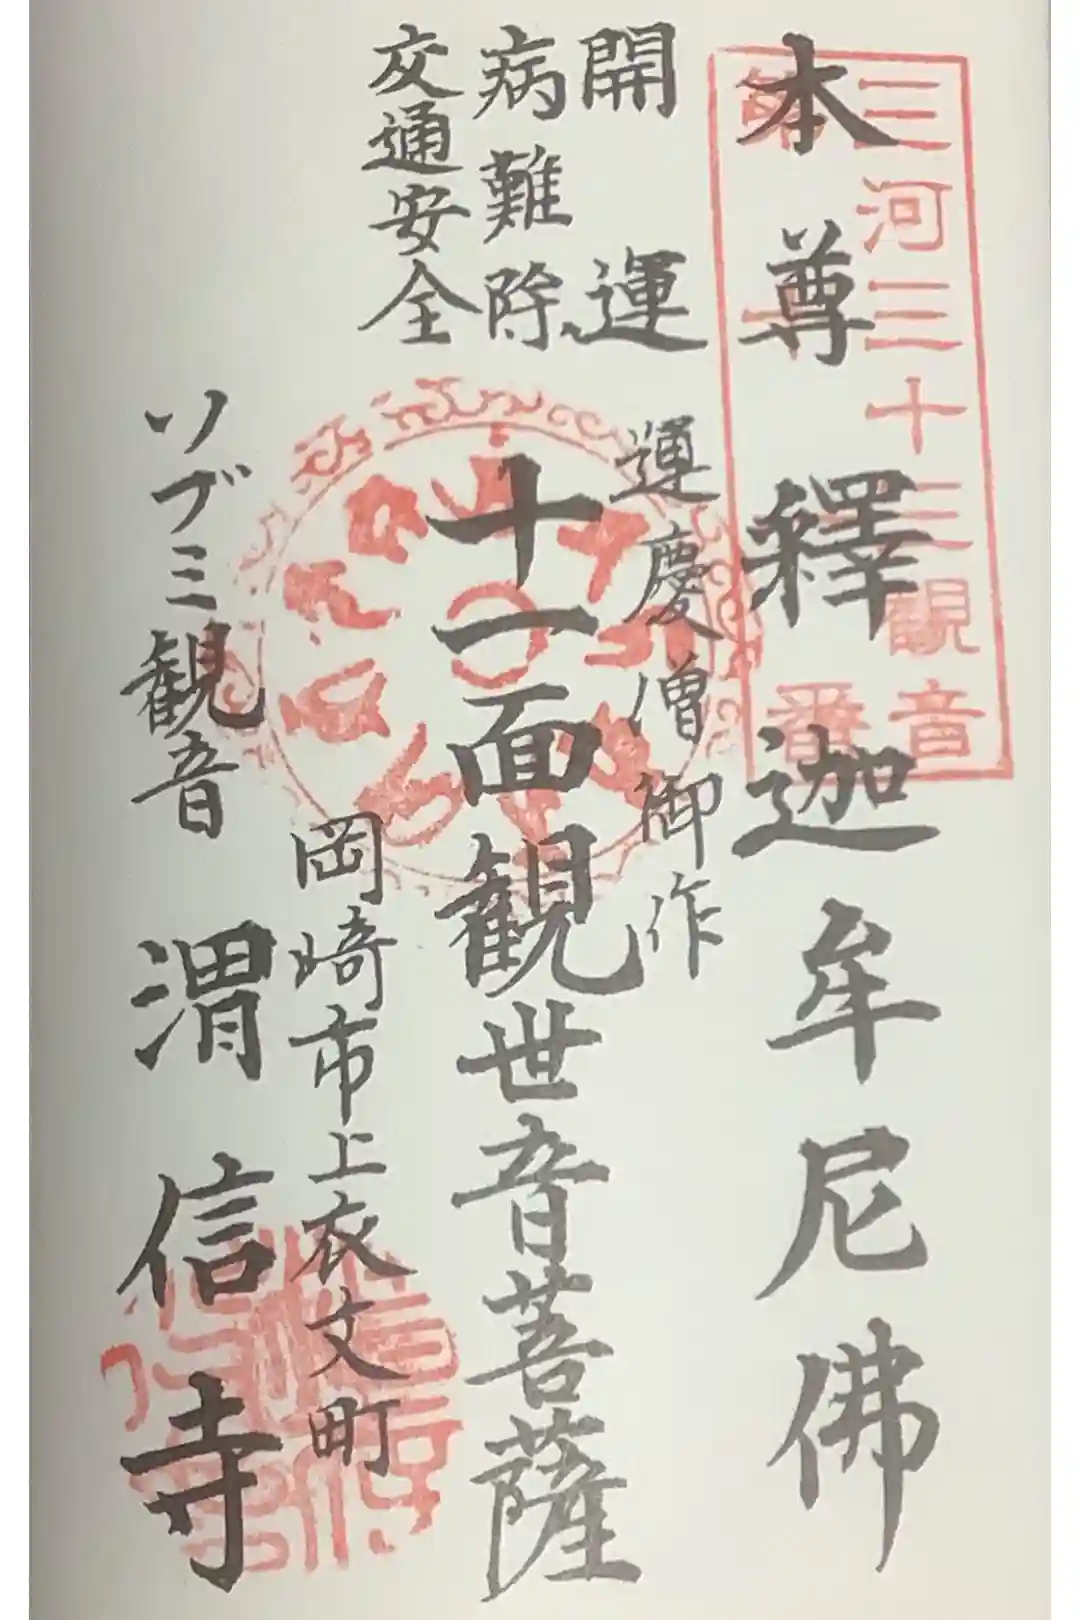 三河三十三観音
本尊釋迦牟尼佛
開運
病難除
交通安全
運慶僧御作
十一面観世音菩薩
岡崎市上衣文町
ソブミ観音
渭信寺